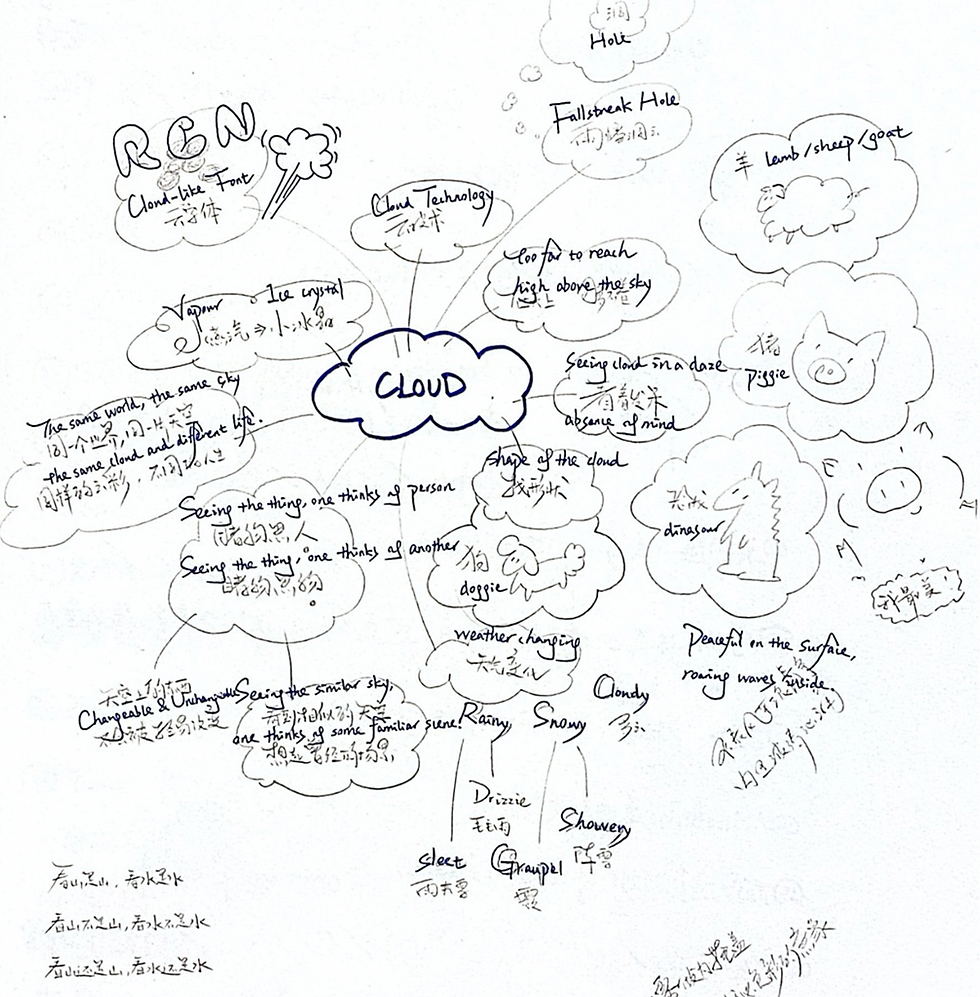 洞
Hole
Fallstreak Hole
雨幡洞云
RGN
Cloud-like Font
云字体
Cloud Technology
云技术
羊 lamb/sheep/goat
too far to reach
high above the sky
Vapour Ice crystal
蒸汽 ⇒ 小冰晶
CLOUD
Seeing cloud in a daze
看着发呆
absence of mind
猪
piggie
The same world, the same sky
同一个世界,同一片天空
the same cloud and different life.
同样的云彩,不同的人生
shape of the cloud
找形状
狗
doggie
恐龙
dinasour
Seeing the thing, one thinks of person
睹物思人
Seeing the thing, one thinks of another
睹物思物
我最美!
weather changing
天气变化
Peaceful on the surface,
roaring waves inside.
Changeable & Unchangeable
Seeing the similar sky,
看到相似的天空
one thinks of some familiar scene!
想起曾经的场景
Rainy
Snowy
Cloudy
多云
Drizzie
毛毛雨
Showery
阵雪
sleet
雨夹雪
Graupel
霰
看山是山,看水是水
看山不是山,看水不是水
看山还是山,看水还是水